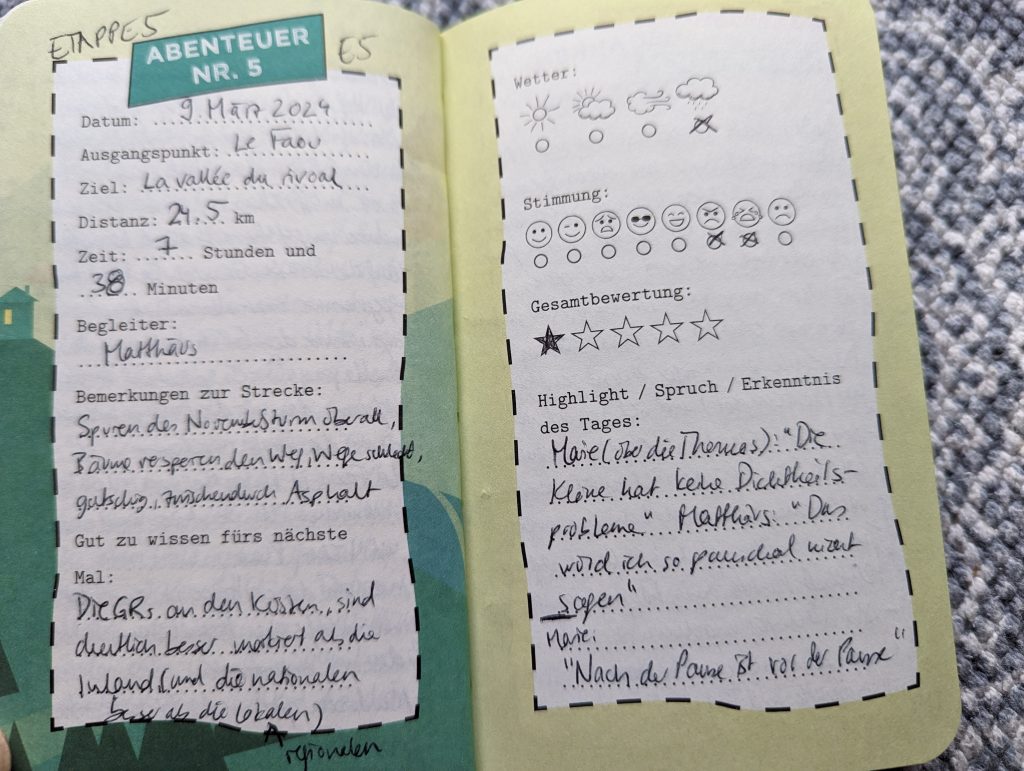 ETAPPE 5
ABENTEUER
NR. 5
E5
Datum: 9. März 2024
Ausgangspunkt: Le Faou
Ziel: La vallée du rivoal
Distanz: 24.5 km
Zeit: 7 Stunden und
38 Minuten
Begleiter:
Matthäus
Bemerkungen zur Strecke:
Spuren des Novembersturm überall,
Bäume versperren den Weg, Wege schlecht,
gatschig, zwischendurch Asphalt
Gut zu wissen fürs nächste
Mal:
Die GRs an den Küsten sind
deutlich besser markiert als die
Inland (und die nationalen
besser als die lokalen)
regionalen
Wetter:
Stimmung:
Gesamtbewertung:
Highlight / Spruch / Erkenntnis
des Tages:
Marie (über die Thermos): "Die
Kleine hat keine Dichtheits-
probleme" Matthäus: "Das
würd ich so pauschal nicht
sagen"
Marie:
"Nach der Pause ist vor der Pause"